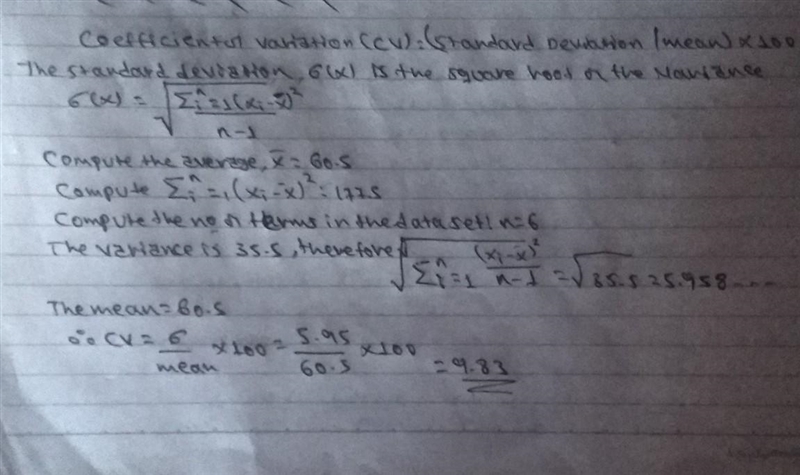 Coefficient of variation (CV): (Standard Deviation / mean) x 100
The standard deviation, σ(x) is the square root of the variance
σ(x) = √(Σᵢⁿ=1(xᵢ-x̄)² / n-1)
Compute the average, x̄ = 60.5
Compute Σᵢⁿ=1 (xᵢ-x̄)² = 177.5
Compute the no of terms in the data set: n=6
The variance is 35.5, therefore √(Σᵢⁿ=1 (xᵢ-x̄)² / n-1) = √35.5 = 5.958....
The mean = 60.5
∴ CV = σ / mean x100 = 5.95 / 60.5 x100 = 9.83